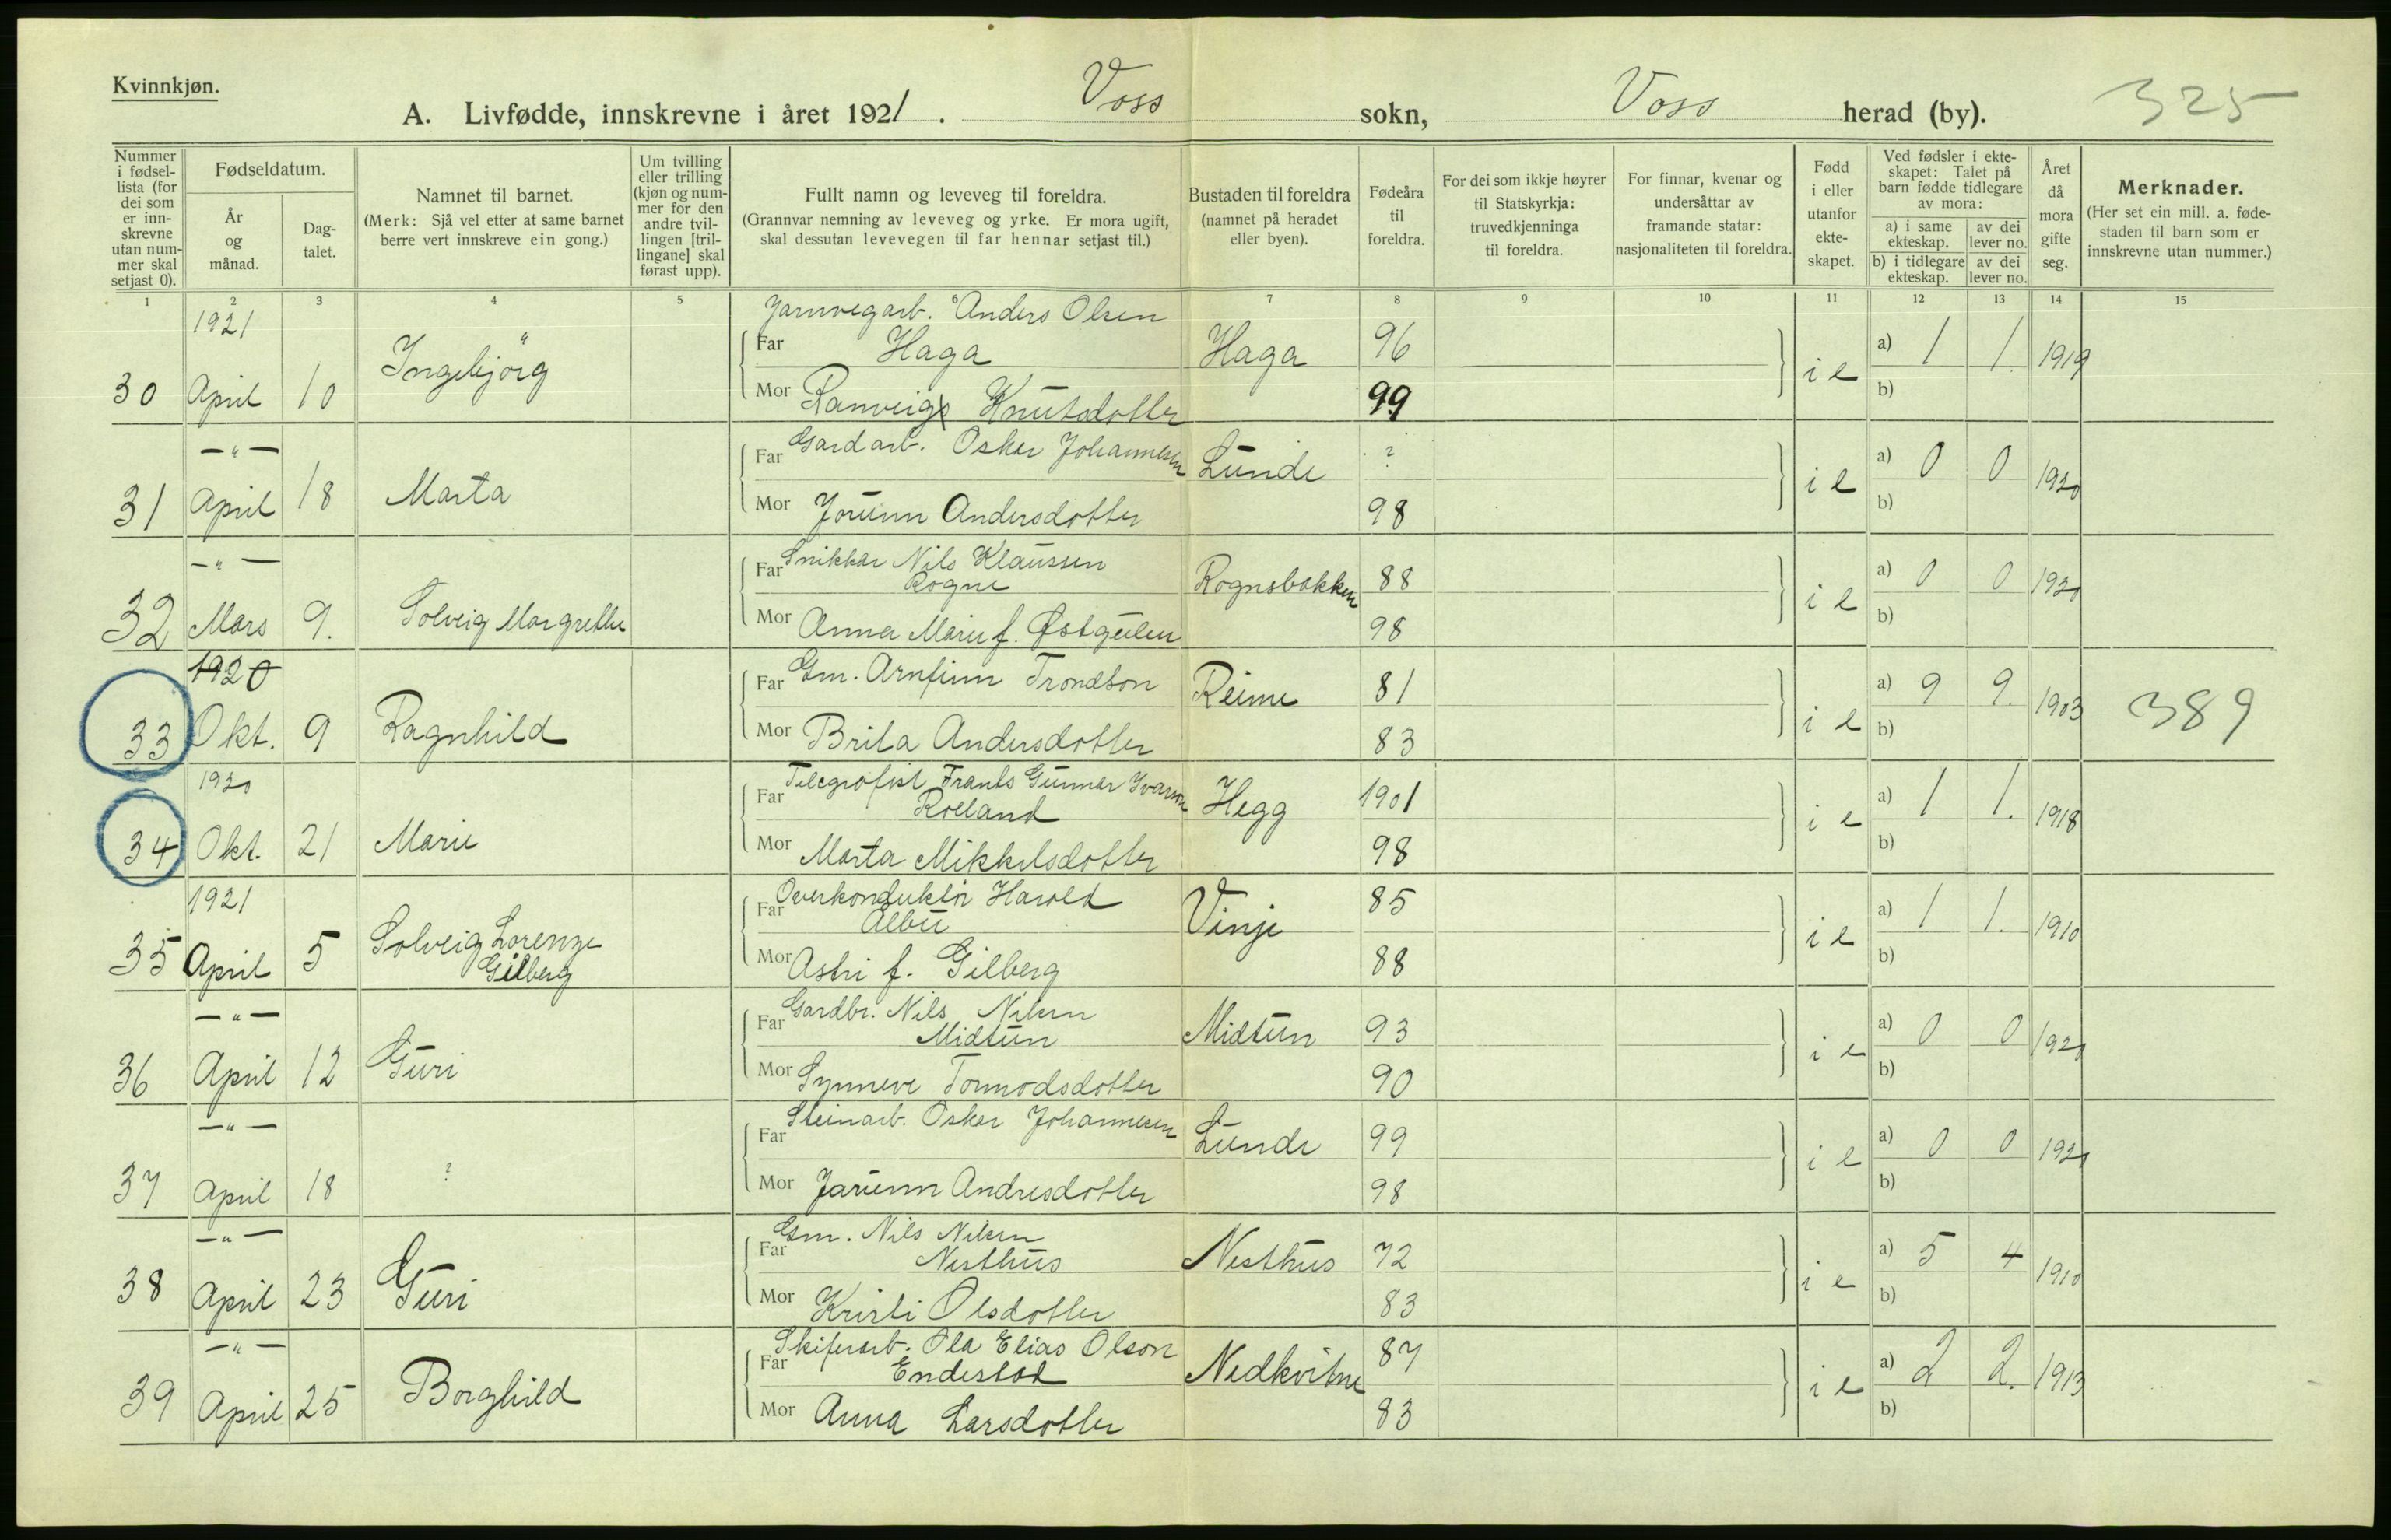 Kvinnkjøn.
A. Livfødde, innskrevne i året 1921. Voss sokn, Voss herad (by). 325
Nummer i fødsel-lista (for dei som er inn-skrevne utan num-mer skal setjast 0).
Fødseldatum.
År og månad.
Dag-talet.
Namnet til barnet.
(Merk: Sjå vel etter at same barnet berre vert innskreve ein gong.)
Um tvilling eller trilling (kjøn og num-mer for den andre tvil-lingen [tril-lingane] skal førast upp).
Fullt namn og leveveg til foreldra.
(Grannvar nemning av leveveg og yrke. Er mora ugift, skal dessutan levevegen til far hennar setjast til.)
Bustaden til foreldra (namnet på heradet eller byen).
Fødeåra til foreldra.
For dei som ikkje høyrer til Statskyrkja: truvedkjenninga til foreldra.
For finnar, kvenar og undersåttar av framande statar: nasjonaliteten til foreldra.
Fødd i eller utanfor ekte-skapet.
Ved fødsler i ekte-skapet: Talet på barn fødde tidlegare av mora:
a) i same ekteskap. av dei lever no.
b) i tidlegare ekteskap. av dei lever no.
Året då mora gifte seg.
Merknader.
(Her set ein mill. a. føde-staden til barn som er innskrevne utan nummer.)
1 2 3 4 5 6 7 8 9 10 11 12 13 14 15
1921
30 April 10 Ingebjörg
Jarnvegarb. Anders Olsen
Far Haga Haga 96 i e a) 1 1 1919
Mor Ranveig Knutsdotter 99 b)
— " —
31 April 18 Marta
Far Gardarb. Oskar Johannesen Lunde ? i e a) 0 0 1920
Mor Jorunn Andersdotter 98 b)
— " —
32 Mars 9. Solveig Margrethe
Far Snikkar Nils Klaussen
Rogne Rognsbakken 88 i e a) 0 0 1920
Mor Anna Marie f. Østgulen 98 b)
1920
33 Okt. 9 Ragnhild
Far Gm. Arnfinn Trondson Reime 81 i e a) 9 9. 1903 389
Mor Brita Andersdotter 83 b)
1920
34 Okt. 21 Marie
Far Telegrafist Frants Gunnar Ivarson
Rolland Hegg 1901 i e a) 1 1. 1918
Mor Marta Mikkelsdotter 98 b)
1921
35 April 5 Solveig Lorenze
Gilberg
Far Overkonduktör Harold
Aelbu Vinje 85 i e a) 1 1. 1910
Mor Astri f. Gilberg 88 b)
— " —
36 April 12 Guri
Far Gardbr. Nils Nilsen
Midtun Midtun 93 i e a) 0 0 1920
Mor Synneve Tormodsdotter 90 b)
— " —
37 April 18 ?
Far Steinarb. Oskar Johannesen Lunde 99 i e a) 0 0 1920
Mor Jarunn Andresdotter 98 b)
— " —
38 April 23 Guri
Far Gm. Nils Nilsen
Nesthus Nesthus 72 i e a) 5 4 1910
Mor Kristi Olsdotter 83 b)
— " —
39 April 25 Borghild
Far Skiferarb. Ola Elias Olson
Endestad Nedkvitne 87 i e a) 2 2. 1913
Mor Anna Larsdotter 83 b)